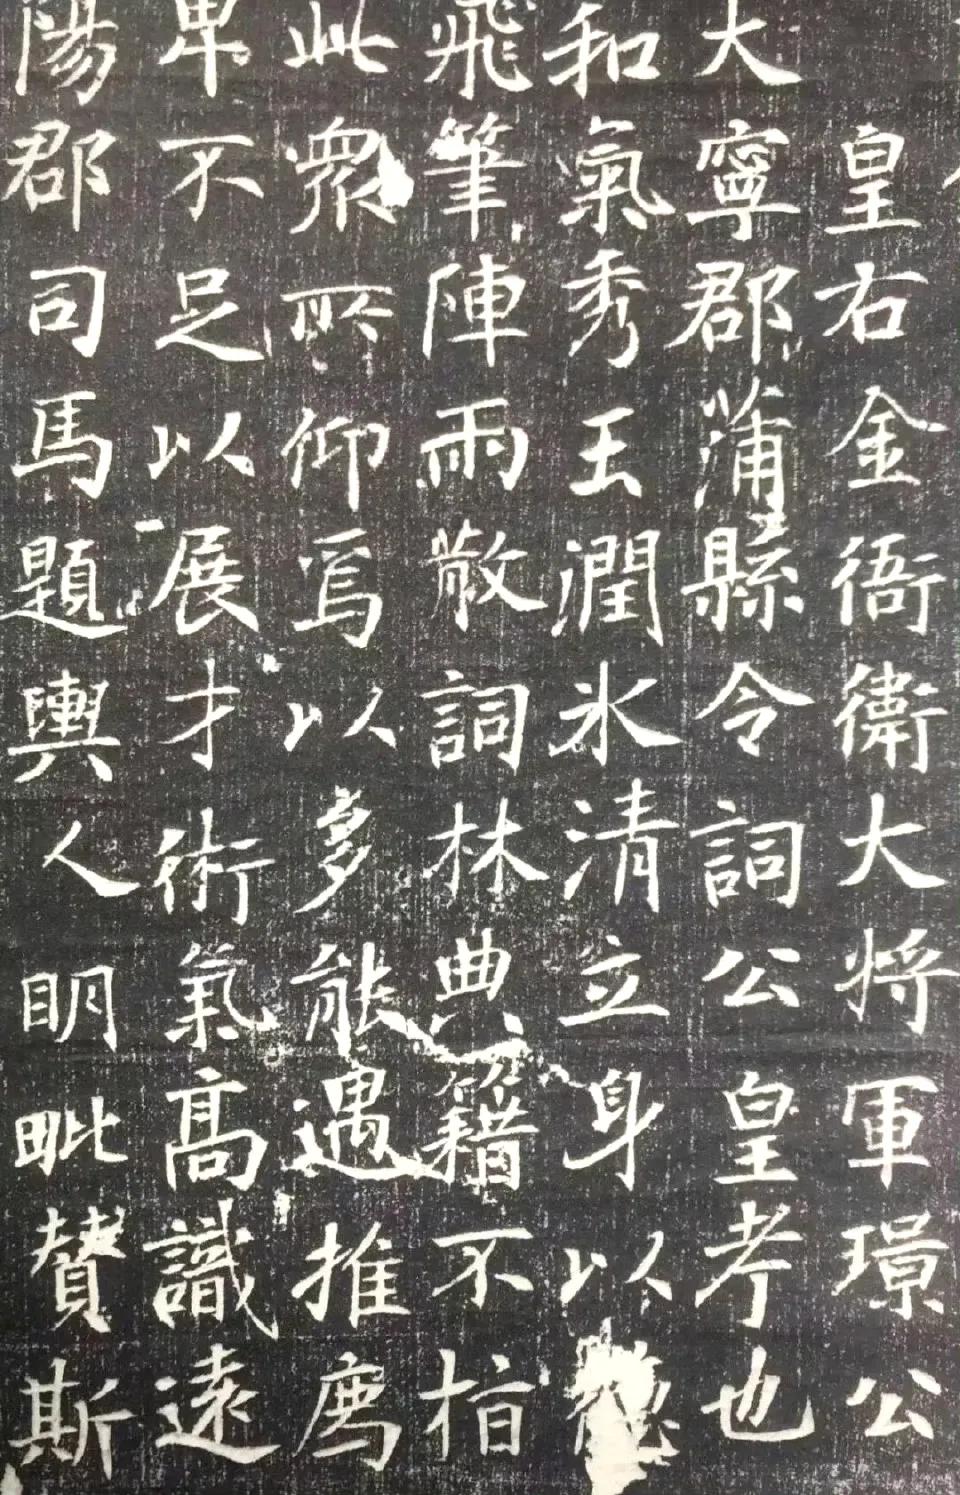 皇右金衙衛大將軍璟公
大寧郡蒲縣令詞公皇考也
和氣秀玉潤氷清立身以
飛筆陣雨散詞林典籍不指
此衆所仰焉以多能遇推薦
卑不足以展才術氣高識遠
陽郡司馬題輿人明毗贊斯